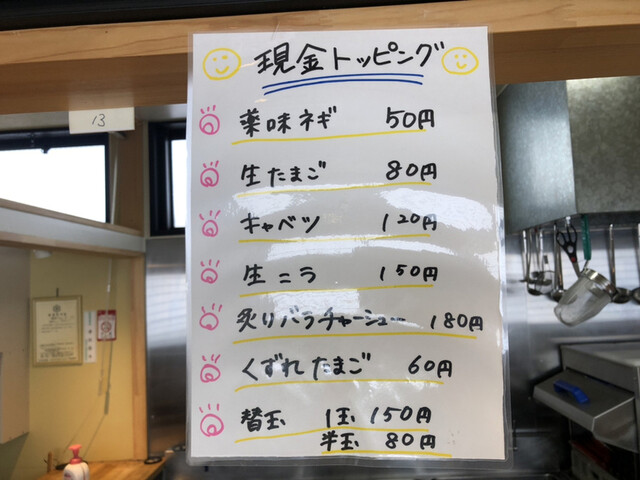 現金トッピング
薬味ネギ 50円
生たまご 80円
キャベツ 120円
生ニラ 150円
炙りバラチャーシュー 180円
くずれたまご 60円
替玉 1玉 150円
半玉 80円
13